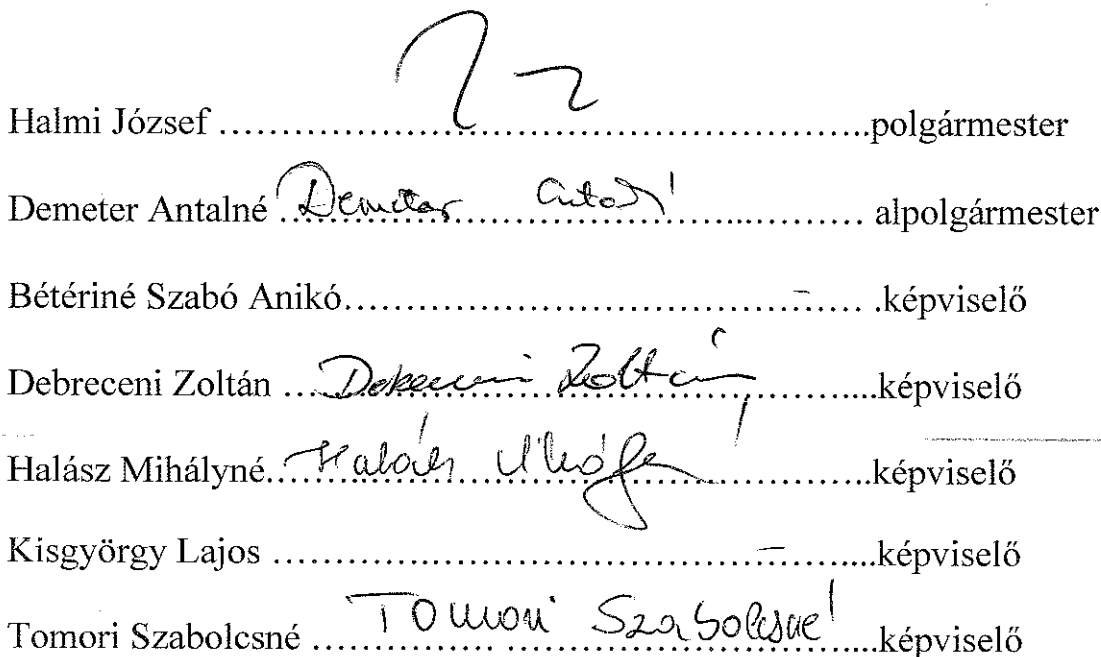 Halmi József ……………………………………………..polgármester
Demeter Antalné Demeter Antalné ……………………………………... alpolgármester
Bétériné Szabó Anikó…………………………………–…. .képviselő
Debreceni Zoltán …Debreceni Zoltán……………………………....képviselő
Halász Mihályné………………………………………..képviselő
Kisgyörgy Lajos …………………………………–……...képviselő
Tomori Szabolcsné Tomori Szabolcsné …………… ……………………...képviselő